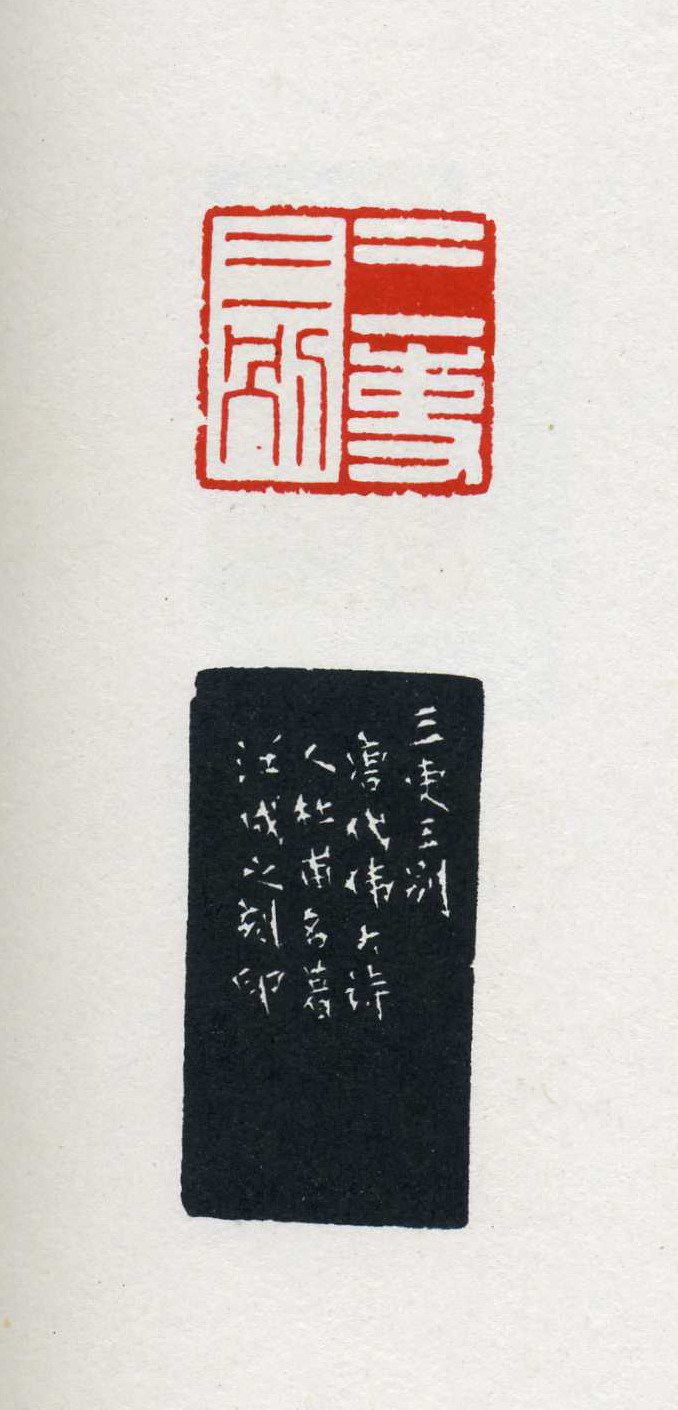 三吏
三别
三吏三别
唐代伟大诗
人杜甫名著
汪成之刻印